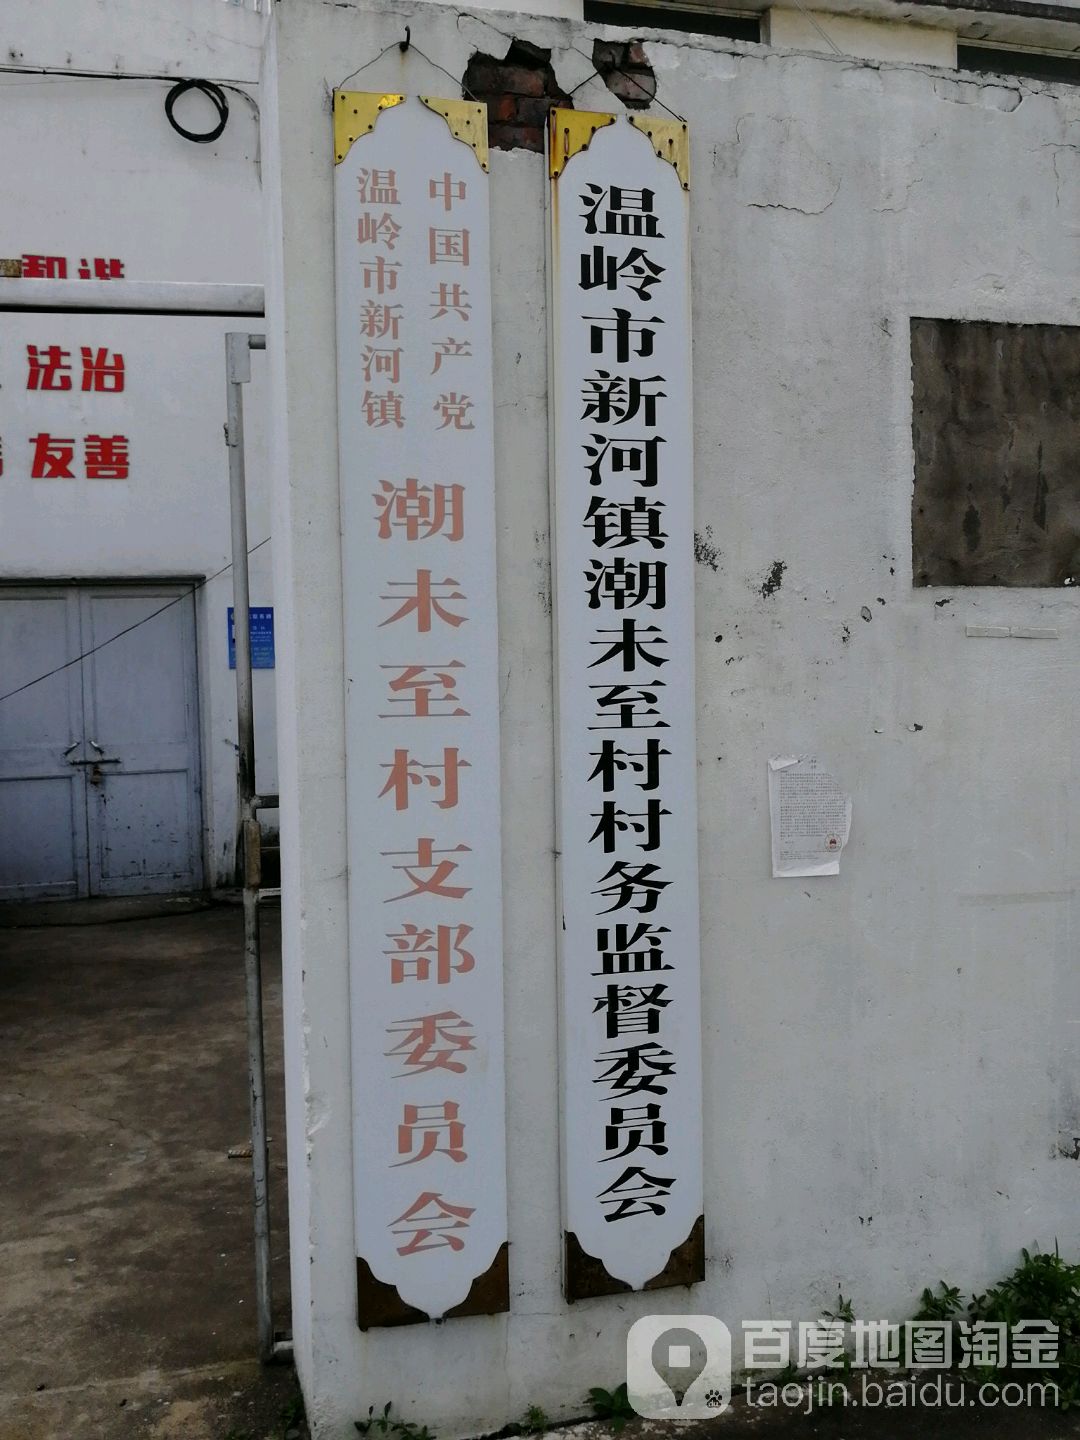 中国共产党
温岭市新河镇
潮未至村支部委员会
温岭市新河镇潮未至村村务监督委员会
和谐
法治
友善
百度地图淘金
taojin.baidu.com